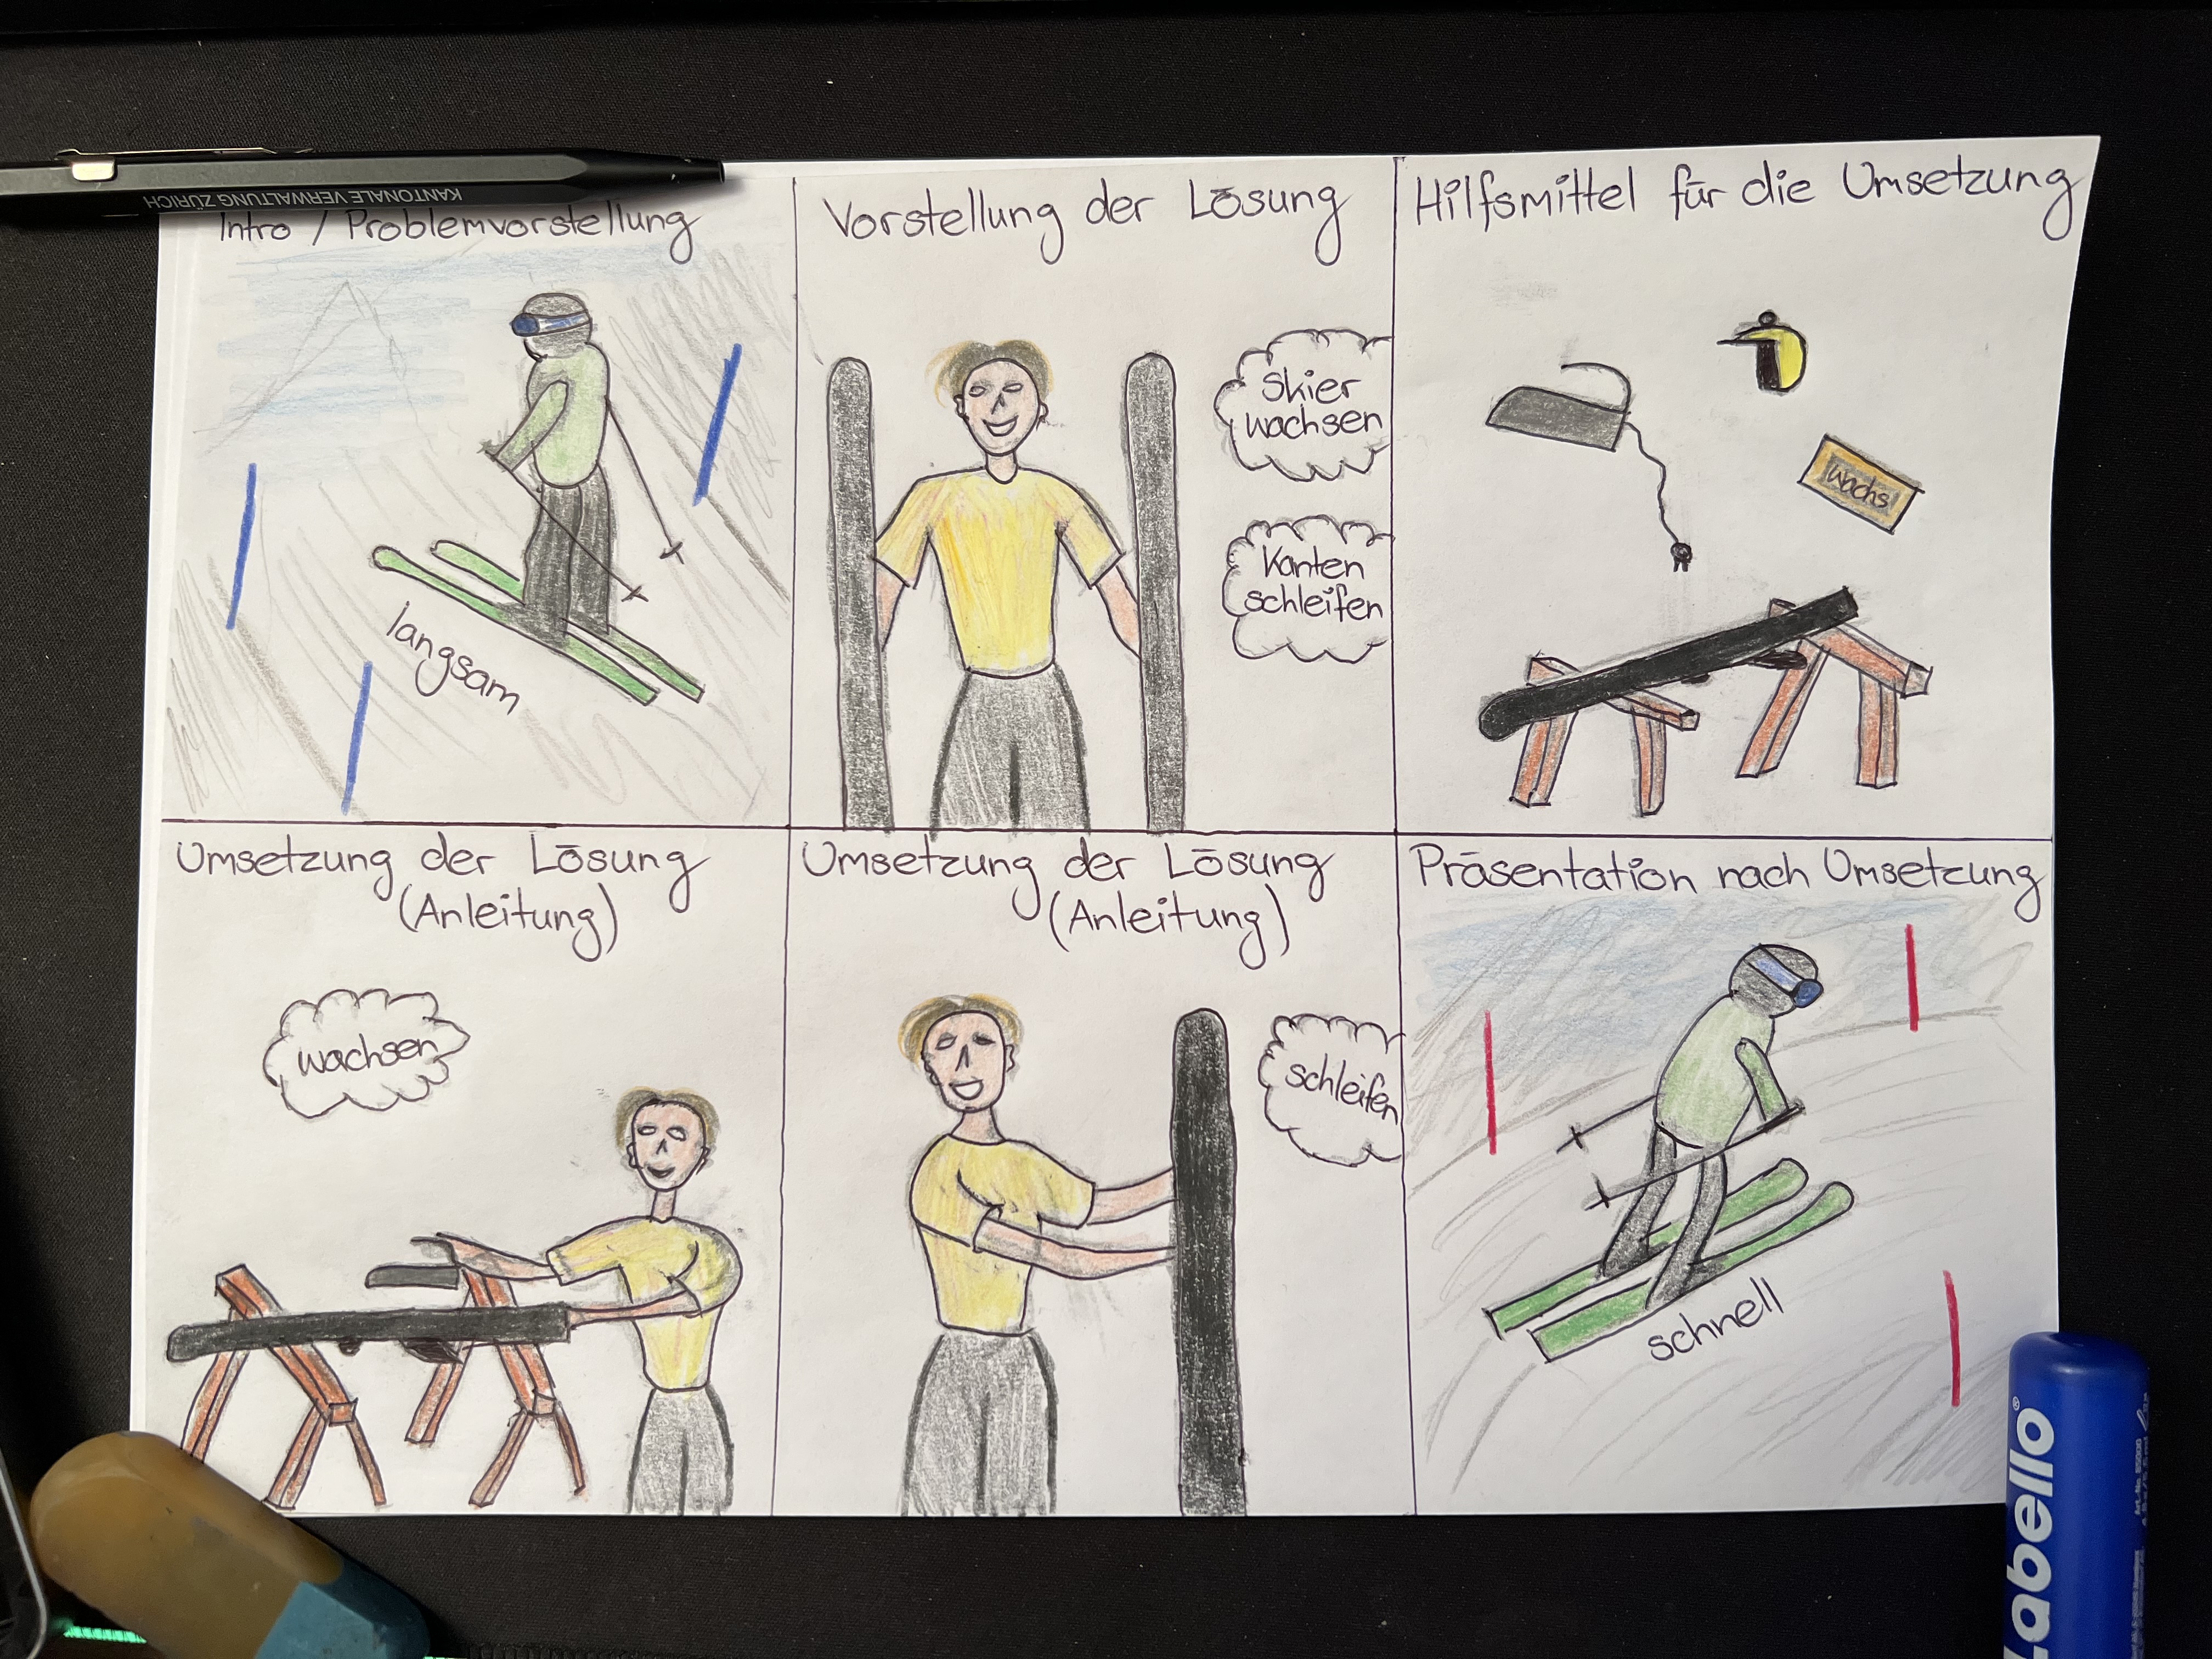 KANTONALE VERWALTUNG ZÜRICH
Intro / Problemvorstellung
langsam
Vorstellung der Lösung
Skier
wachsen
Kanten
schleifen
Hilfsmittel für die Umsetzung
Wachs
Umsetzung der Lösung
(Anleitung)
wachsen
Umsetzung der Lösung
(Anleitung)
schleifen
Präsentation nach Umsetzung
schnell
Labello®